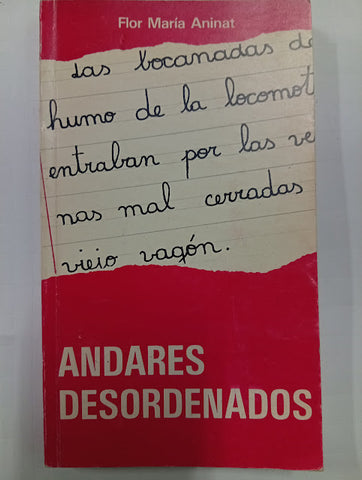 Flor María Aninat
Las bocanadas de
humo de la locomot
entraban por las ve
nas mal cerradas
viejo vagón.
ANDARES
DESORDENADOS